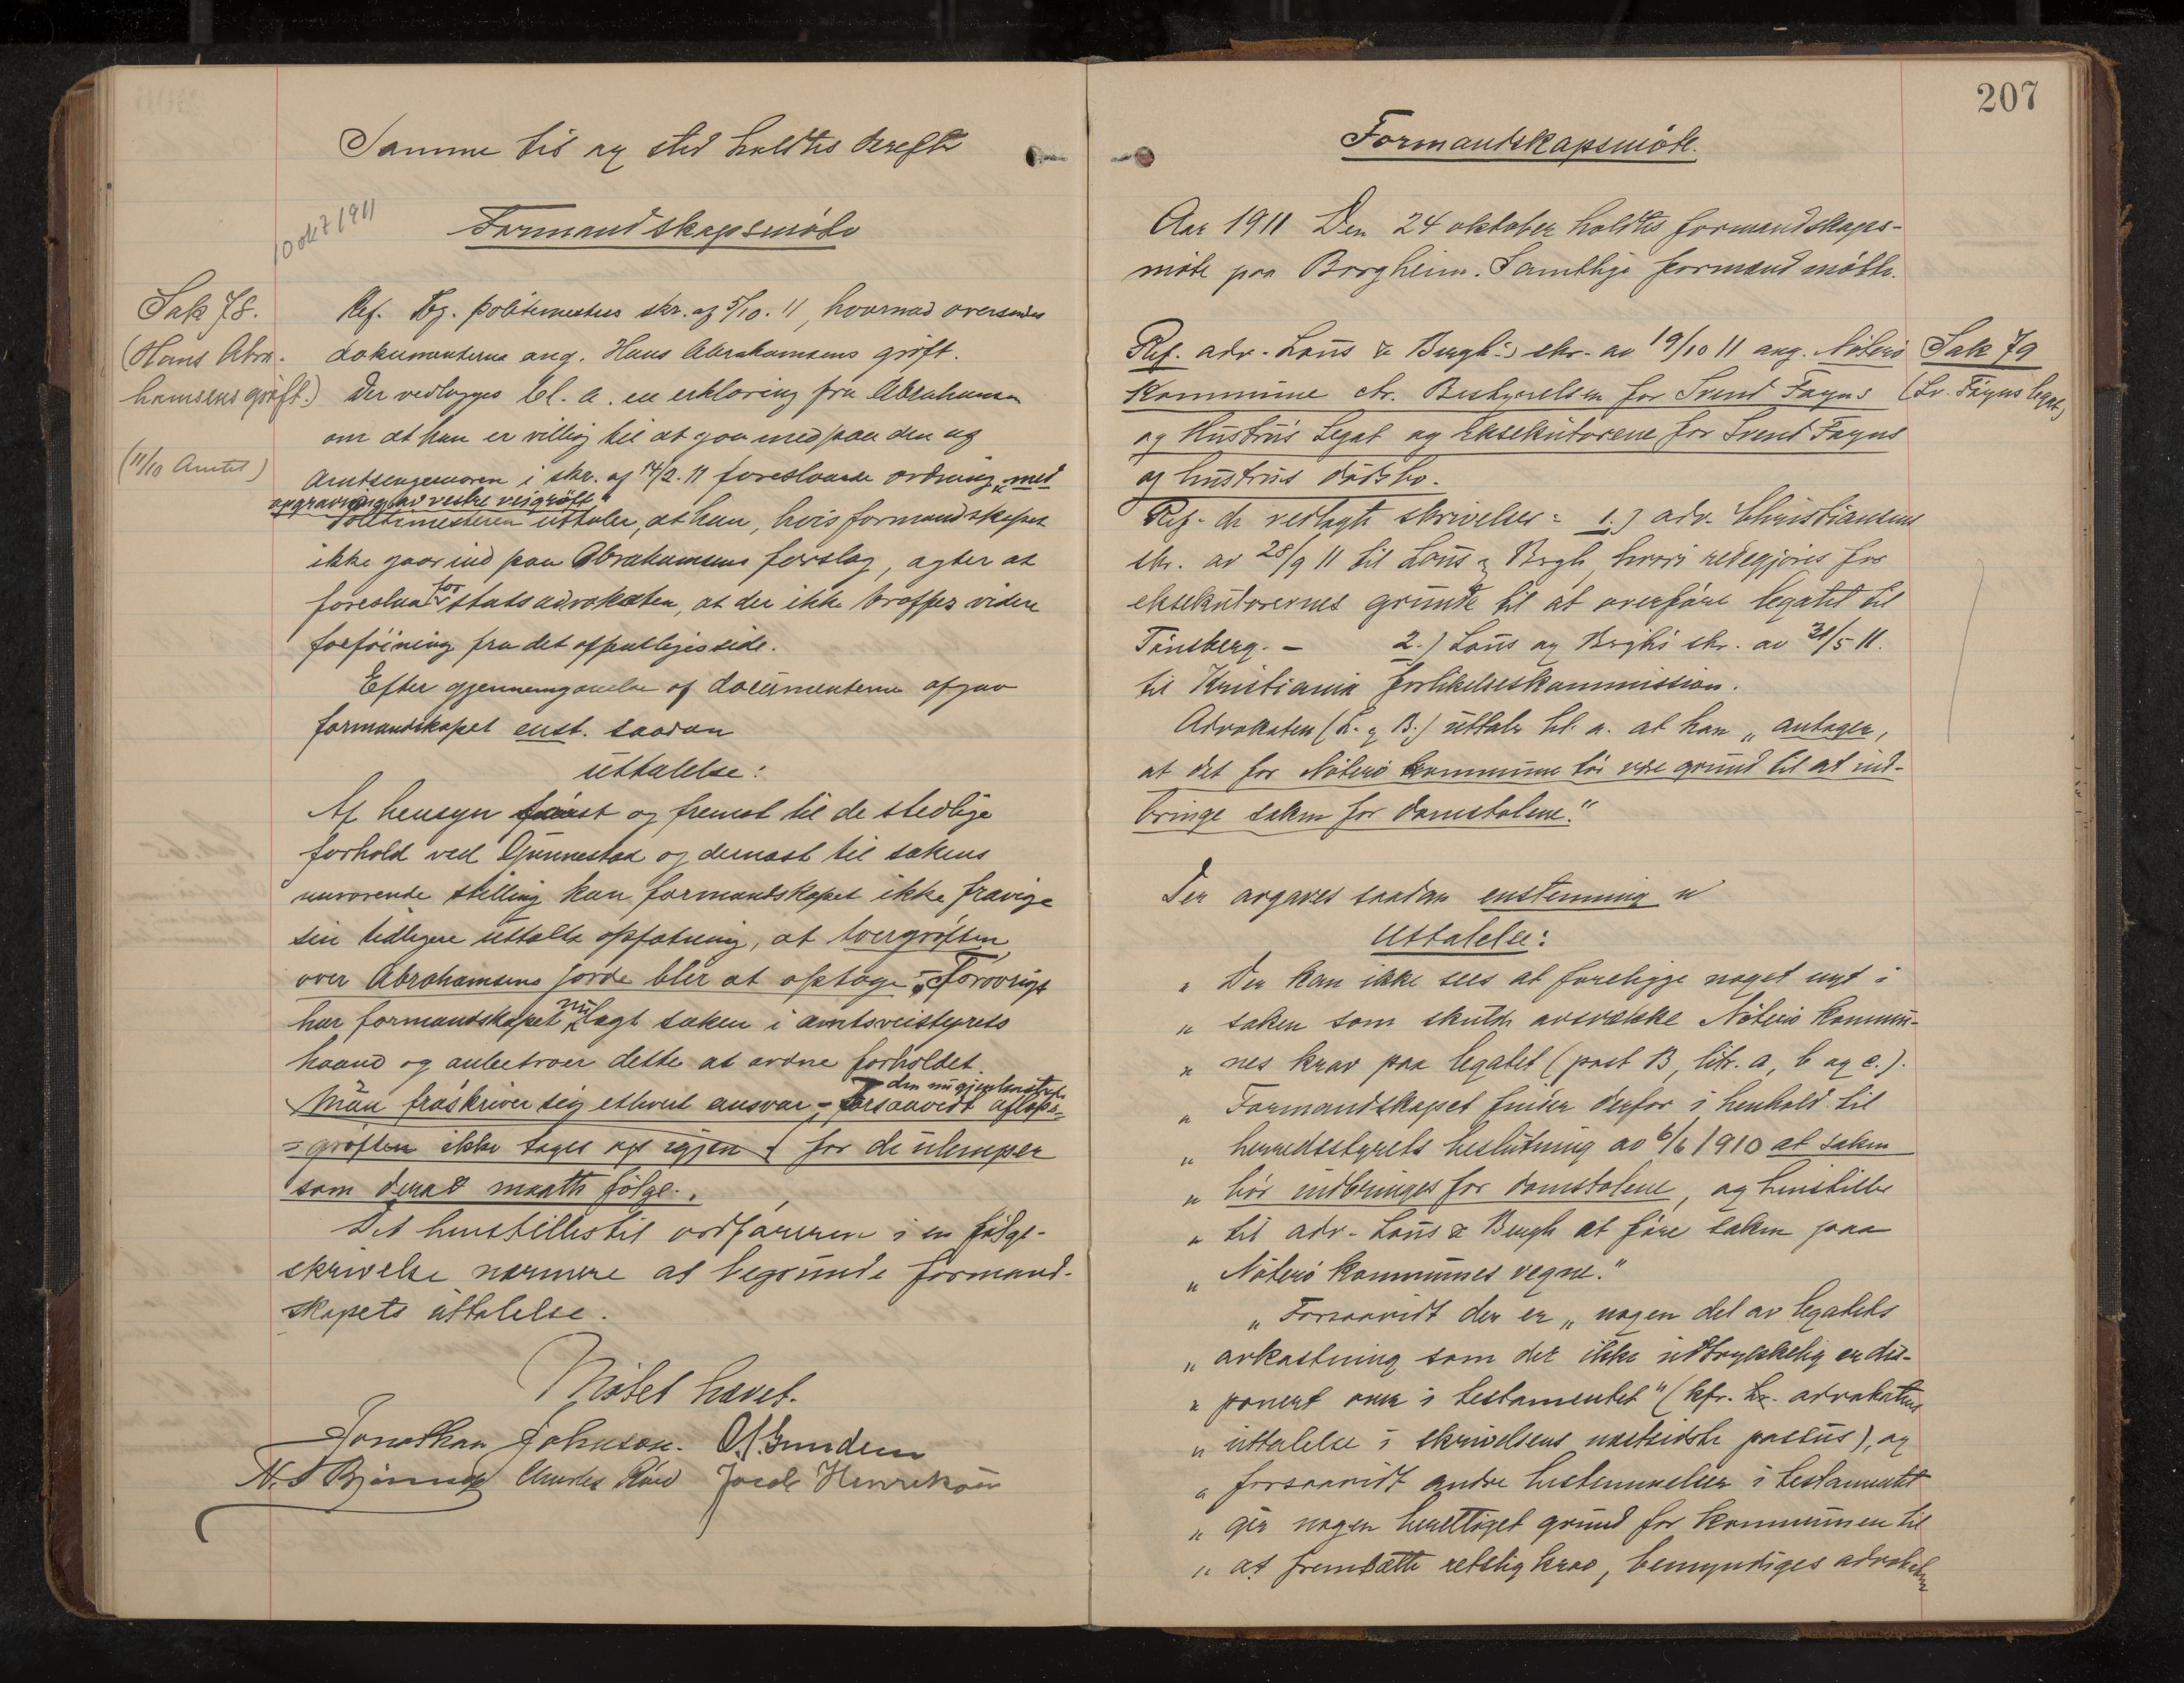 Samme tid og sted holdtes derefter
10 okt 1911
Formandskapsmöte
Sak 78.
(Hans Abra-
hamsens gröft.)
(11/10 Amtet)
Ref. Tbg. politimesters skr. af 5/10. 11, hvormed oversendes
dokumenterne ang. Hans Abrahamsens gröft.
Der vedlægges bl. a. en erklæring fra Abrahamsen
om at han er villig til at gaa med paa den af
Amtsingeniøren i skr. af 14/2. 11 foreslaaede ordning „med
opgravning av vestre veigröft"
Politimesteren uttaler, at han, hvis formandskapet
ikke gaar ind paa Abrahamsens forslag, agter at
foreslaa for statsadvokaten, at der ikke træffes videre
forföining fra det offentliges side.
Efter gjennemgaaelse af documenterne afgav
formandskapet enst. saadan
uttalelse:
Af hensyn först og fremst til de stedlige
forhold ved Gunnestad og dernæst til sakens
nuværende stilling kan formandskapet ikke fravige
sin tidligere uttalte opfatning, at tvergröften
over Abrahamsens jorde blir at optage. Forövrigt
har formandskapet nu lagt saken i amtsveistyrets
haand og anbetroer dette at ordne forholdet.
Man fraskriver sig ethvert ansvar – forsaavidt den nu gjenkastede aflöps-
=gröften ikke tages op igjen – for de ulemper
som derad maatte fölge.
Det henstilles til ordföreren i en fölge-
skrivelse nærmere at begrunde formand-
skapets uttalelse.
Mötet hævet.
Jonathan Johnson. O. J. Gundersen
N. S Bjønnes Charles Röed Jacob Henriksen
207
Formandskapsmöte.
Aar 1911 Den 24 oktober holdtes formandskaps-
möte paa Borgheim. Samtlige formænd mötte.
Sak 79
(Sv. Föyns legat)
Ref. adv. Lous & Bergh's skr. av 19/10 11 ang. Nöterö
Kommune ctr. Bestyrelsen for Svend Foyns
og Hustru's Legat og Eksekutorene for Svend Foyns
og hustrus dödsbo.
Ref. de vedlagte skrivelser: 1.) adv. Christiansens
skr. av 28/9 11 til Lous & Bergh, hvori redegjöres for
eksekutorernes grunde til at overföre legatet til
Tönsberg. – 2.) Lous og Berghs skr. av 31/5 11.
til Kristiania forlikelseskommission.
Advokaten (L. & B.) uttaler bl. a. at han „antager,
at det for Nöterö kommune tör være grund til at ind-
bringe saken for domstolene."
Der avgaves saadan enstemmig
Uttalelse:
„ Der kan ikke sees at foreligge noget nyt i
„ saken som skulde avsvække Nöterö kommu-
„ nes krav paa legatet (post B, litr. a, b og c.).
„ Formandskapet finder derfor i henhold til
„ herredsstyrets beslutning av 6/6 1910 at saken
„ bör indbringes for domstolene, og henstiller
„ til adv. Lous & Bergh at före saken paa
„ Nöterö kommunes vegne."
„ Forsaavidt der er „ nogen del av legatets
„ avkastning som der ikke udtrykkelig er dis-
„ poneret over i testamentet" (kfr. hr. advokatens
„ uttalelse i skrivelsens næstsidste passus), og
„ forsaavidt andre bestemmelser i testamentet
„ gir nogen berettiget grund for kommunen til
„ at fremsætte retslig krav, bemyndiges advokaten